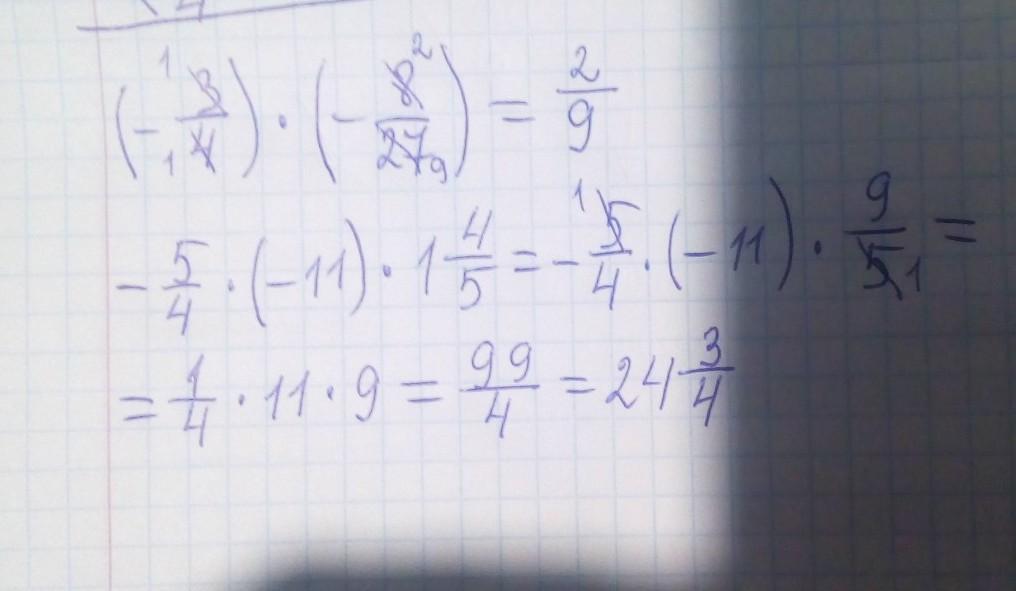 (-3/4) · (-8/27) = 2/9
-5/4 · (-11) · 1 4/5 = -5/4 · (-11) · 9/5 =
= 1/4 · 11 · 9 = 99/4 = 24 3/4